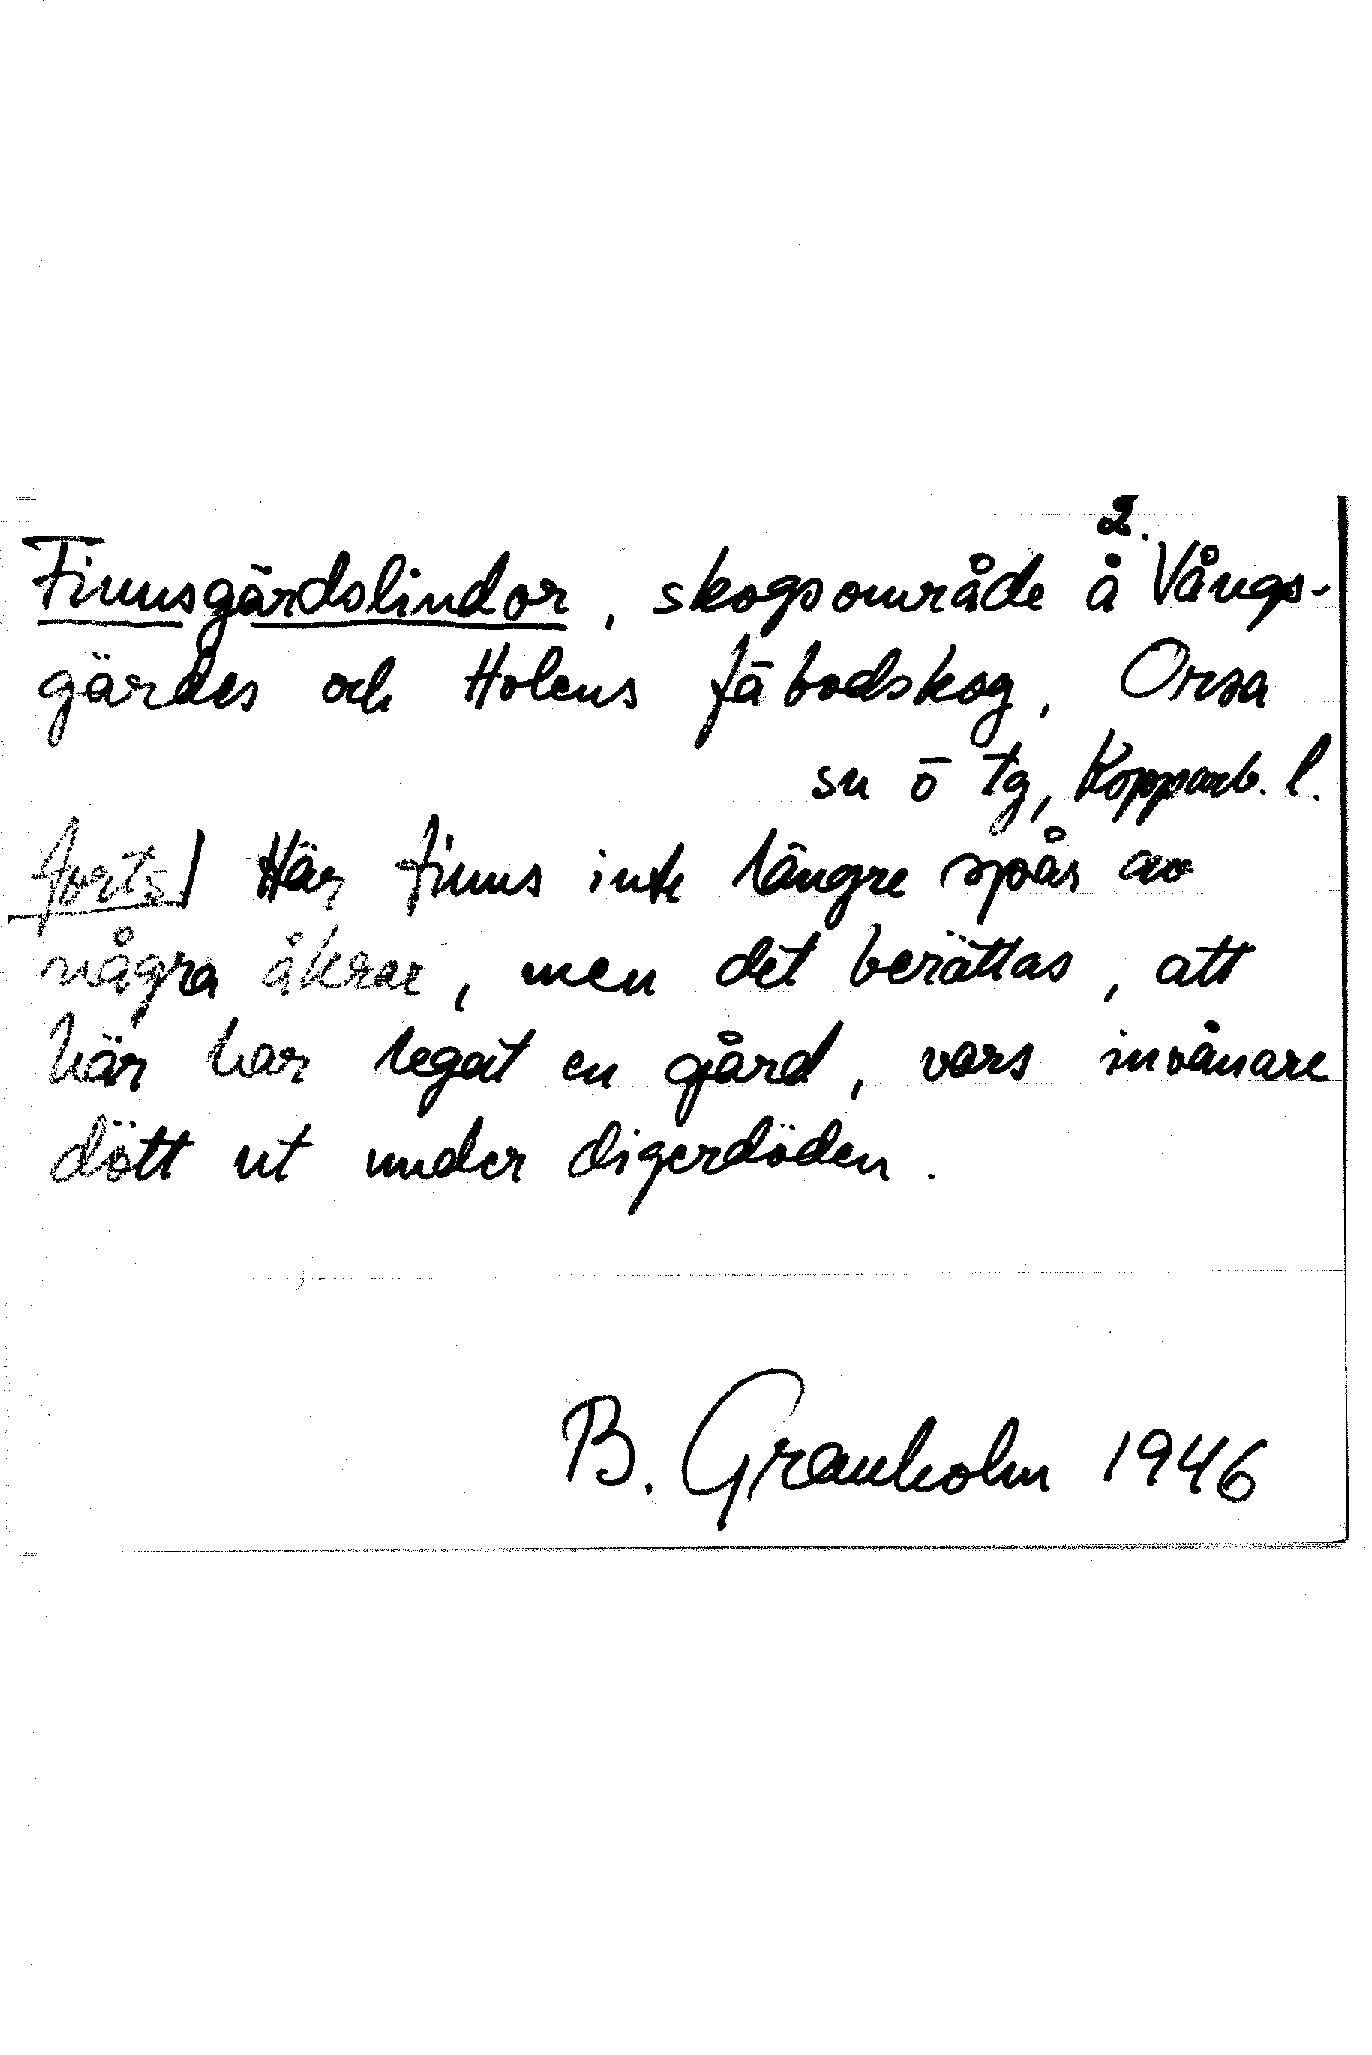 2.
Finnsgärdslindor, skogsområde å Vångs-
gärdes och Holens fäbodskog, Orsa
sn ö tg, Kopparb. l.
forts] Här finns inte längre spår av
några åkrar, men det berättas, att
här har legat en gård, vars invånare
dött ut under digerdöden.
B. Granholm 1946